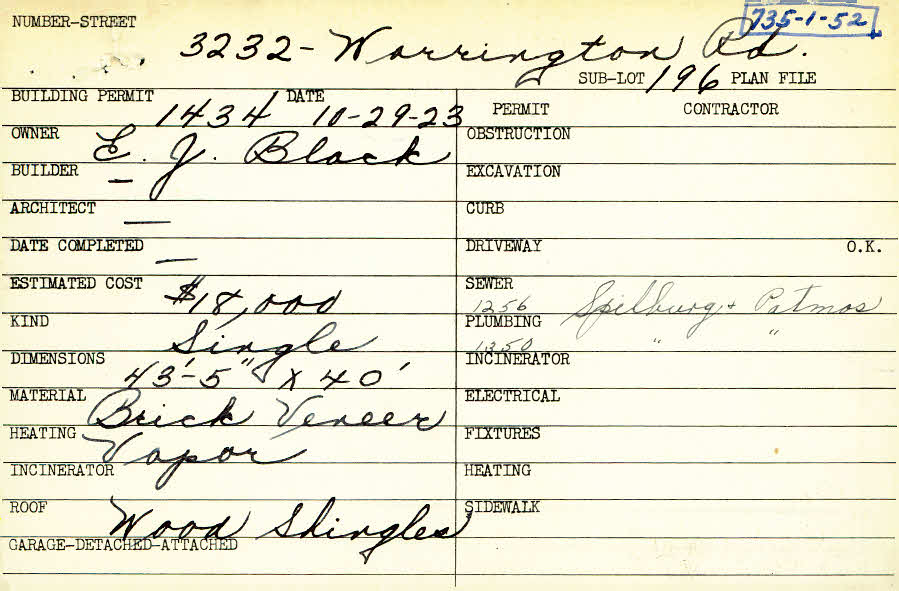 735-1-52
NUMBER-STREET
3232-Warrington Rd.
SUB-LOT 196 PLAN FILE
BUILDING PERMIT 1434 DATE 10-29-23
PERMIT CONTRACTOR
OWNER E. J. Black
OBSTRUCTION
BUILDER —
EXCAVATION
ARCHITECT —
CURB
DATE COMPLETED —
DRIVEWAY O.K.
ESTIMATED COST $18,000
SEWER 1256 Spilburg + Patmos
KIND Single
PLUMBING 1350 " "
DIMENSIONS 43'-5" x 40'
INCINERATOR
MATERIAL Brick Veneer
ELECTRICAL
HEATING Vapor
FIXTURES
INCINERATOR
HEATING
ROOF Wood Shingles
SIDEWALK
GARAGE-DETACHED-ATTACHED